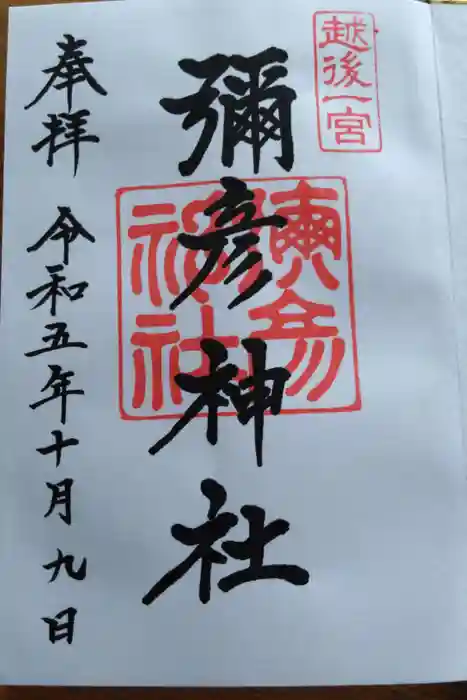 越後一宮
彌彦神社
彌彦神社
奉拝 令和五年十月九日